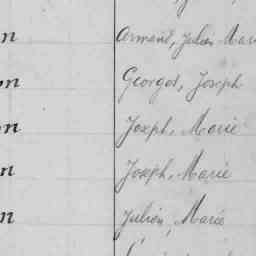 n Armand, Julien Mari
n Georges, Joseph
n Joseph, Marie
n Joseph, Marie
n Julien, Marie